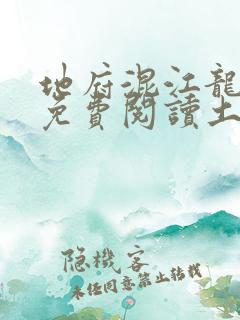 地府混江龍
免費閱讀土
隐機客
未经同意禁止转载